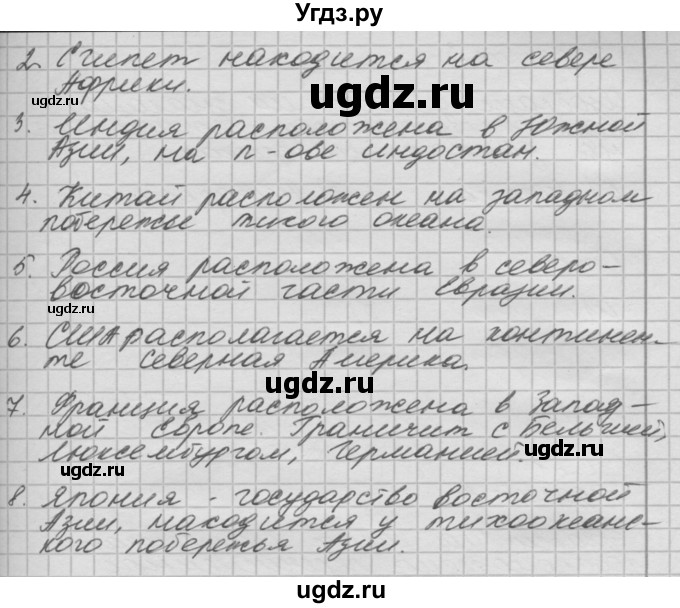 Угдз.ру
2. Египет находится на севере
Африки.
ugdz.ru
ugdz.ru
3. Индия расположена в Южной
Азии, на п-ове индостан.
ugdz.ru
4. Китай расположен на западном
побережье тихого океана.
5. Россия расположена в северо-
восточной части Евразии.
6. США располагается на континен-
те северная Америка.
ugdz.ru
ugdz.ru
7. Франция расположена в Запад-
ной Европе. Граничит с Бельгией,
Люксембургом, Германией.
ugdz.ru
ugdz.ru
8. Япония - государство восточной
Азии, находится у тихоокеанс-
кого побережья Азии.
ugdz.ru
ugdz.ru